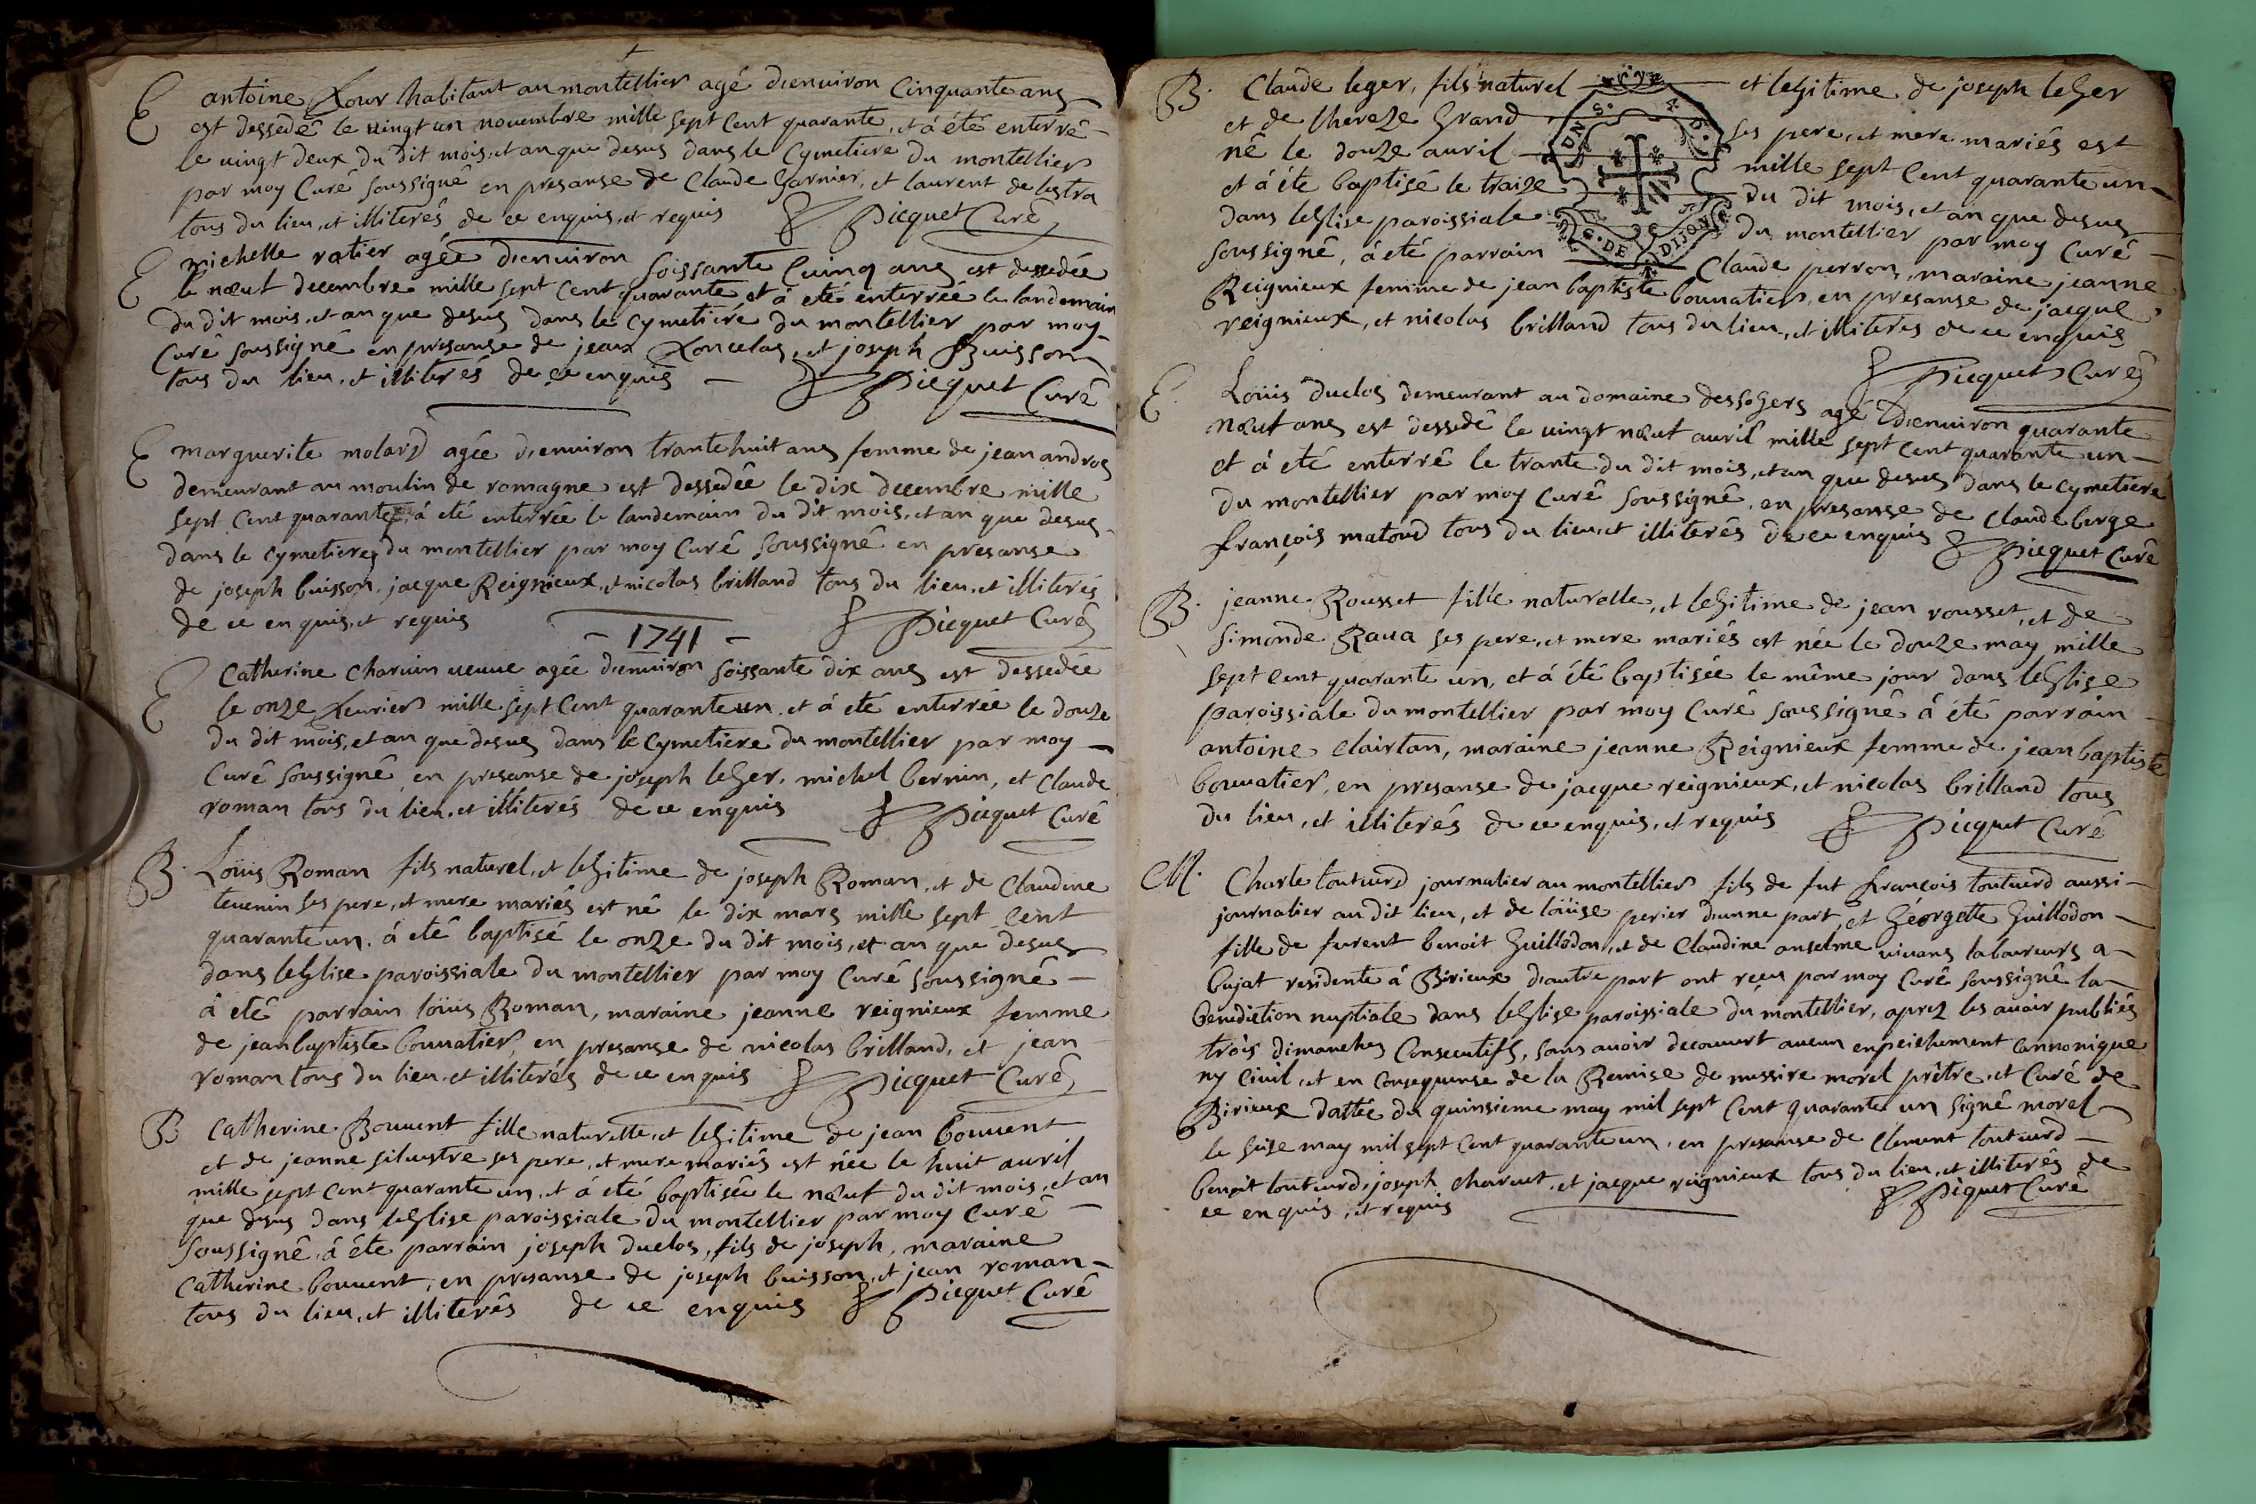 E antoine four habitant au montellier agé d'enuiron Cinquante ans
est dessedé le uingt un nouembre mille sept Cent quarante, et á été enterré
le uingt deux du dit mois, et an que desus dans le Cymetiere du montellier
par moy Curé soussigné en presanse de Claude Garnier, et laurent de lestra
tous du lieu, et illiterés de ce enquis, et requis Picquet Curé
E michelle ratier agée d'enuiron soissante Cuinq ans est dessedée
le nœuf decembre mille sept Cent quarante et á eté enterrée le landemain
du dit mois, et an que desus dans le Cymetiere du montellier par moy
Curé soussigné en presanse de jean foncelas, et joseph Buisson
tous du lieu, et illiterés de ce enquis Picquet Curé
E marguerite molard agée d'enuiron trante huit ans femme de jean andros
demeurant au moulin de romagne est dessedée le dix decembre mille
sept Cent quarante, á eté enterrée le landemain du dit mois, et an que desus
dans le Cymetiere du montellier par moy Curé soussigné en presanse
de joseph buisson, jacque Reignieux, et nicolas brilland tous du lieu, et illiterés
de ce enquis, et requis Picquet Curé
- 1741 -
E Catherine charuin ueuue agée d'enuiron soissante dix ans est dessedée
le onze feurier mille sept Cent quarante un et á eté enterrée le douze
du dit mois, et an que desus dans le Cymetiere du montellier par moy
Curé soussigné en presanse de joseph leger, michel bernin, et Claude
roman tous du lieu, et illiterés de ce enquis Picquet Curé
B. Loüis Roman fils naturel, et legitime de joseph Roman, et de Claudine
teuenin ses pere, et mere mariés est né le dix mars mille sept Cent
quarante un. á eté baptisé le onze du dit mois, et an que desus
dans leglise paroissiale du montellier par moy Curé soussigné
á eté parrain loüis Roman, maraine jeanne reignieux femme
de jean baptiste bouuatier, en presanse de nicolas brilland, et jean
roman tous du lieu, et illiterés de ce enquis Picquet Curé
B Catherine Bouuent fille naturelle, et legitime de jean bouuent
et de jeanne siluestre ses pere, et mere mariés est née le huit auril
mille sept Cent quarante un, et á eté baptisée le nœuf du dit mois, et an
que desus dans leglise paroissiale du montellier par moy Curé
soussigné, á éte parrain joseph duclos, fils de joseph, maraine
Catherine bouuent, en presanse de joseph buisson, et jean roman
tous du lieu, et illiterés de ce enquis Picquet Curé
B. Claude leger, fils naturel et legitime de joseph leger
et de thereze Grand ses pere, et mere mariés est
né le douze auril mille sept Cent quarante un
et á éte baptisé le traize du dit mois, et an que desus
dans leglise paroissiale du montellier par moy Curé
soussigné, á eté parrain Claude perron, maraine jeanne
Reignieux femme de jean baptiste bouuatier, en presanse de jacque
reignieux, et nicolas brilland tous du lieu, et illiteres de ce enquis
Picquet Curé
G. DE DIJON
E Loüis duclos demeurant au domaine dessogers agé d'enuiron quarante
nœuf ans est dessedé le uingt nœuf auril mille sept Cent quarante un
et á eté enterré le trante du dit mois, et an que desus dans le Cymetiere
du montellier par moy Curé soussigné, en presanse de Claude berge
françois matoud tous du lieu, et illiterés de ce enquis Picquet Curé
B. jeanne Rousset fille naturelle, et legitime de jean rousset, et de
simonde Raua ses pere, et mere mariés est née le douze may mille
sept Cent quarante un, et á été baptisée le même jour dans leglise
paroissiale du montellier par moy Curé soussigné á été parrain
antoine clairtan, maraine jeanne Reignieux femme de jean baptiste
bouuatier, en presanse de jacque reignieux, et nicolas brilland tous
du lieu, et illiterés de ce enquis, et requis Picquet Curé
M. Charle toutuerd journalier au montellier fils de fut françois toutuerd aussi
journalier au dit lieu, et de loüise perier d'unne part, et Géorgette Guillodon
fille de furent benoit Guillodon, et de Claudine anselme uiuans laboureurs a
bujat residente á Birieux d'autre part ont recus par moy Curé soussigné la
benediction nuptiale dans leglise paroissiale du montellier, aprez les auoir publiés
trois dimanches Consecutifs, sans auoir decouuert aucun enpeichement Cannonique
ny Ciuil, et en Consequense de la Remise de messire morel prêtre, et Curé de
Birieux dattée du quinsieme may mil sept Cent quarante un signé morel
le seise may mil sept Cent quarante un, en presanse de Clement toutuerd
benoit toutuerd, joseph charuet, et jacque reignieux tous du lieu, et illiterés de
ce enquis, et requis Picquet Curé